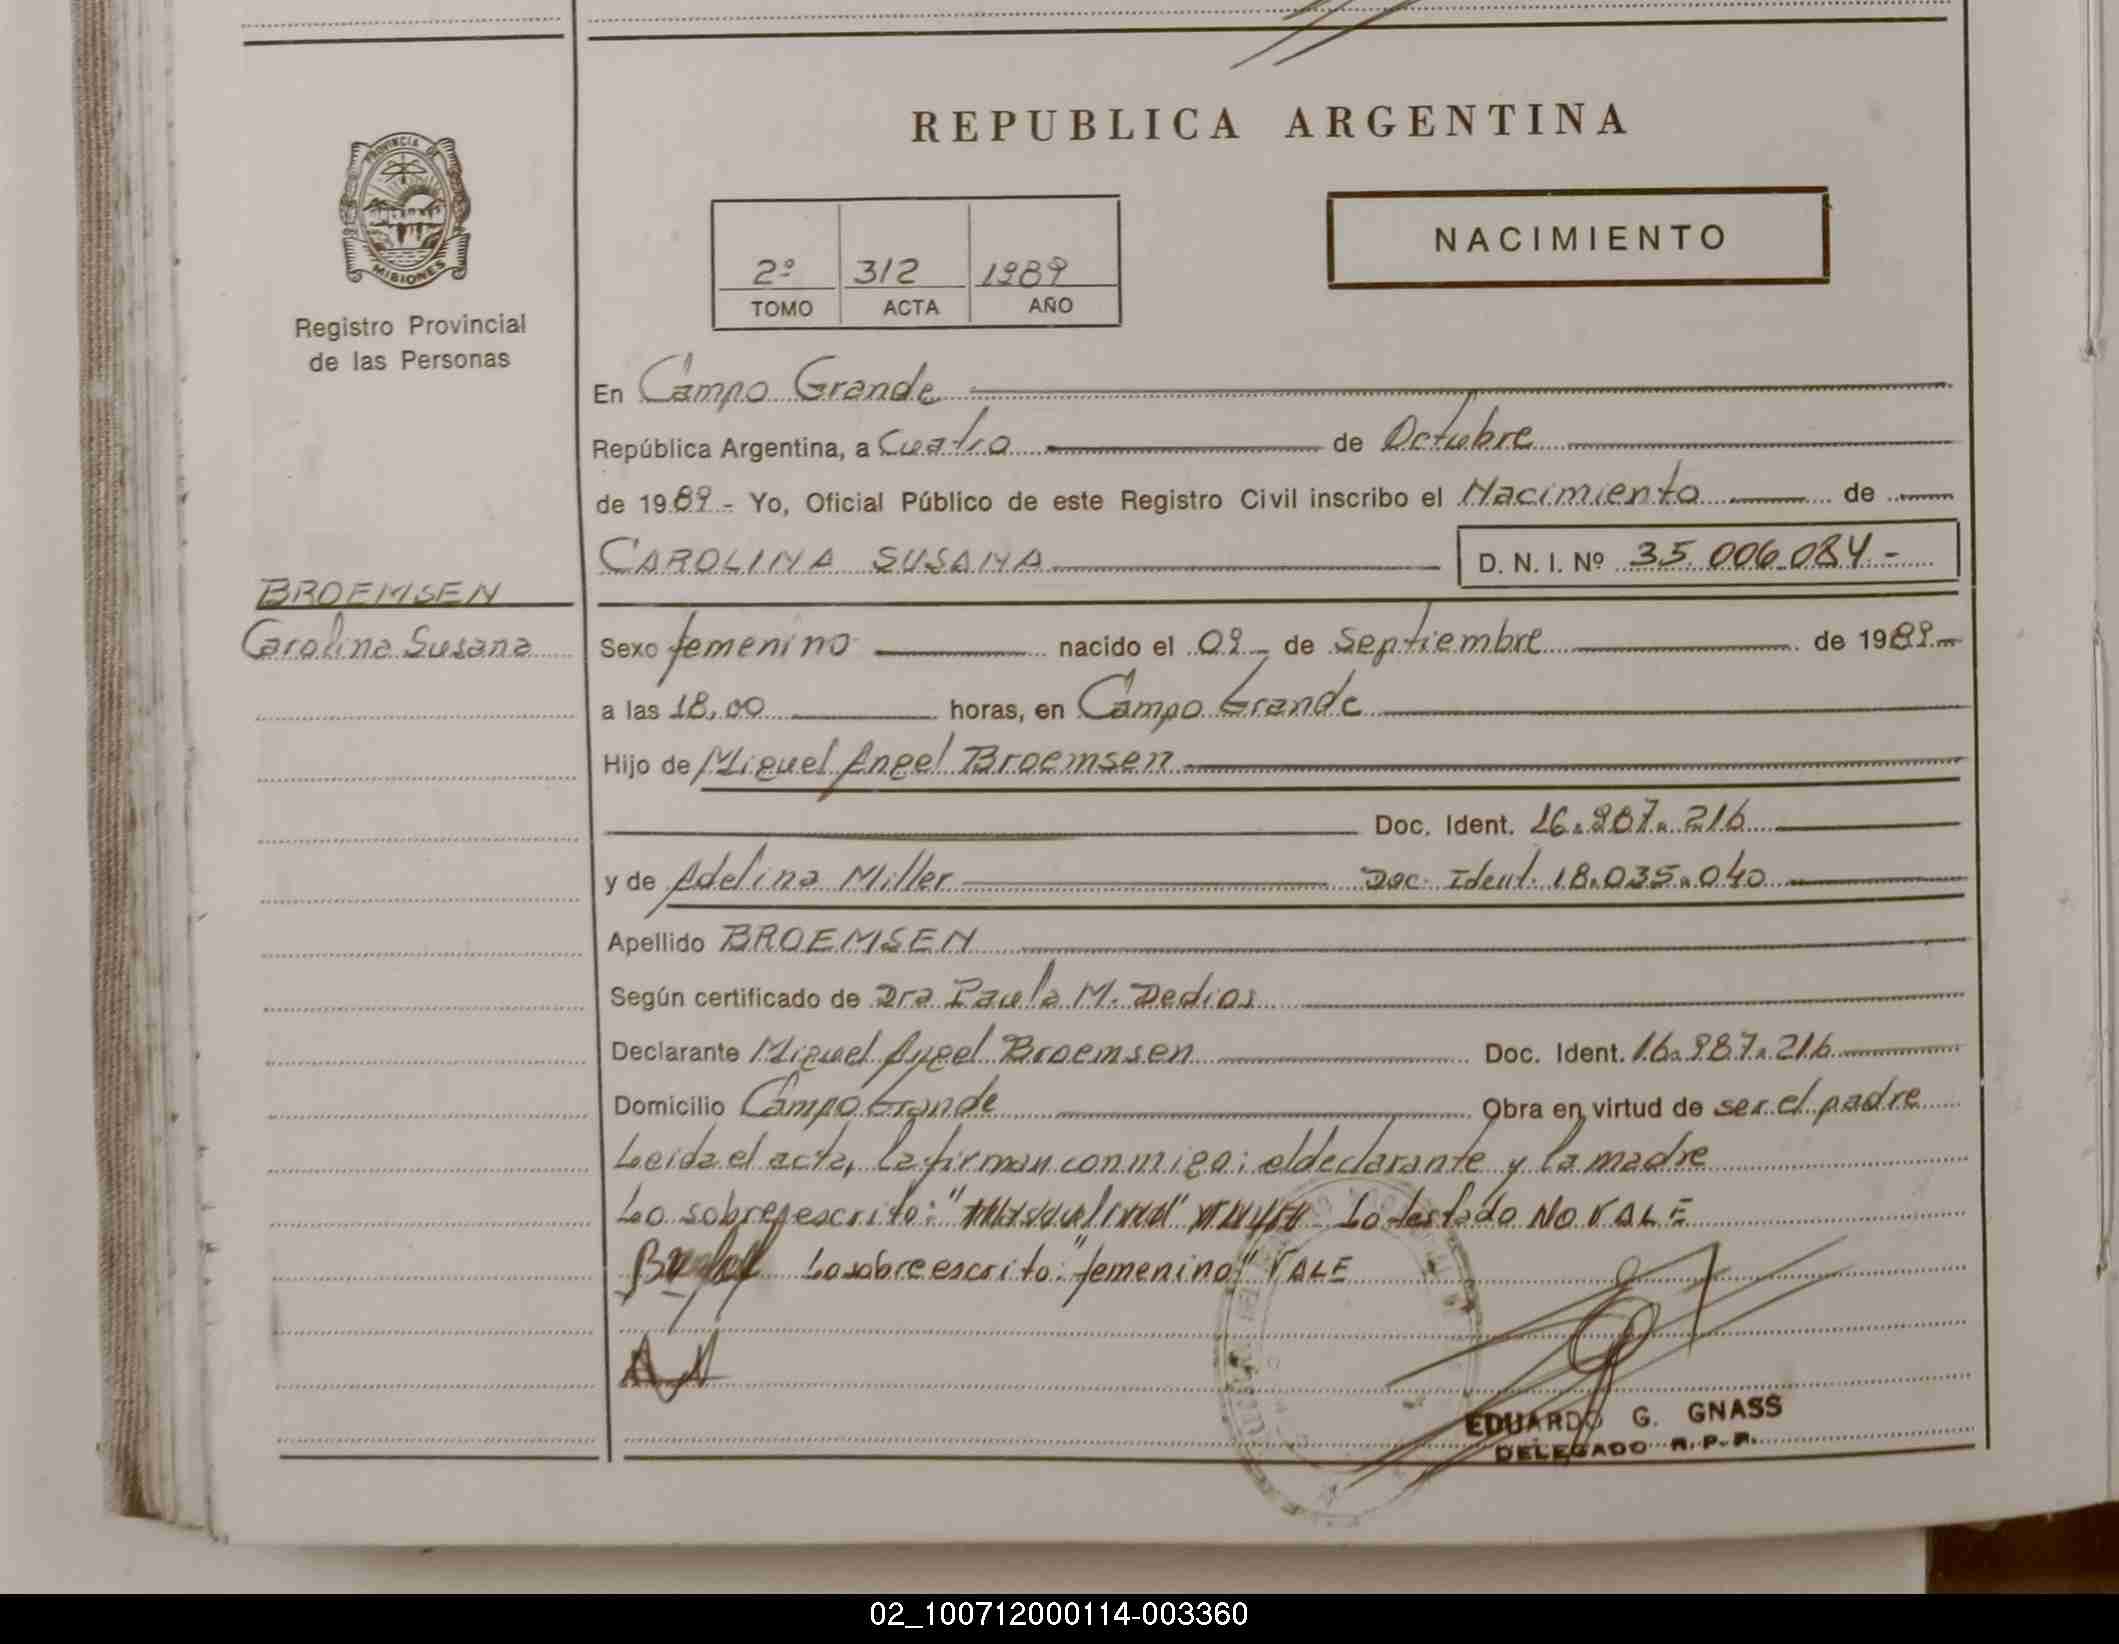 REPUBLICA ARGENTINA
PROVINCIA DE
MISIONES
Registro Provincial
de las Personas
NACIMIENTO
2º 312 1989
TOMO ACTA AÑO
En Campo Grande
República Argentina, a Cuatro de Octubre
de 1989 - Yo, Oficial Público de este Registro Civil inscribo el Nacimiento de
CAROLINA SUSANA D. N. I. Nº 35.006.084-
BROEMSEN
Carolina Susana
Sexo femenino nacido el 09 de Septiembre de 1989
a las 18,00 horas, en Campo Grande
Hijo de Miguel Angel Broemsen
Doc. Ident. 16.987.216
y de Adelina Miller Doc. Ident. 18.035.040
Apellido BROEMSEN
Según certificado de Dra Paula M. Dedios
Declarante Miguel Angel Broemsen Doc. Ident. 16.987.216
Domicilio Campo Grande Obra en virtud de ser el padre
Leida el acta, la firman conmigo: el declarante y la madre
Lo sobrepescrito: Lo testado NO VALE
Lo sobreescrito: "femenino" VALE
EDUARDO G. GNASS
DELEGADO R.P.P.
02_100712000114-003360